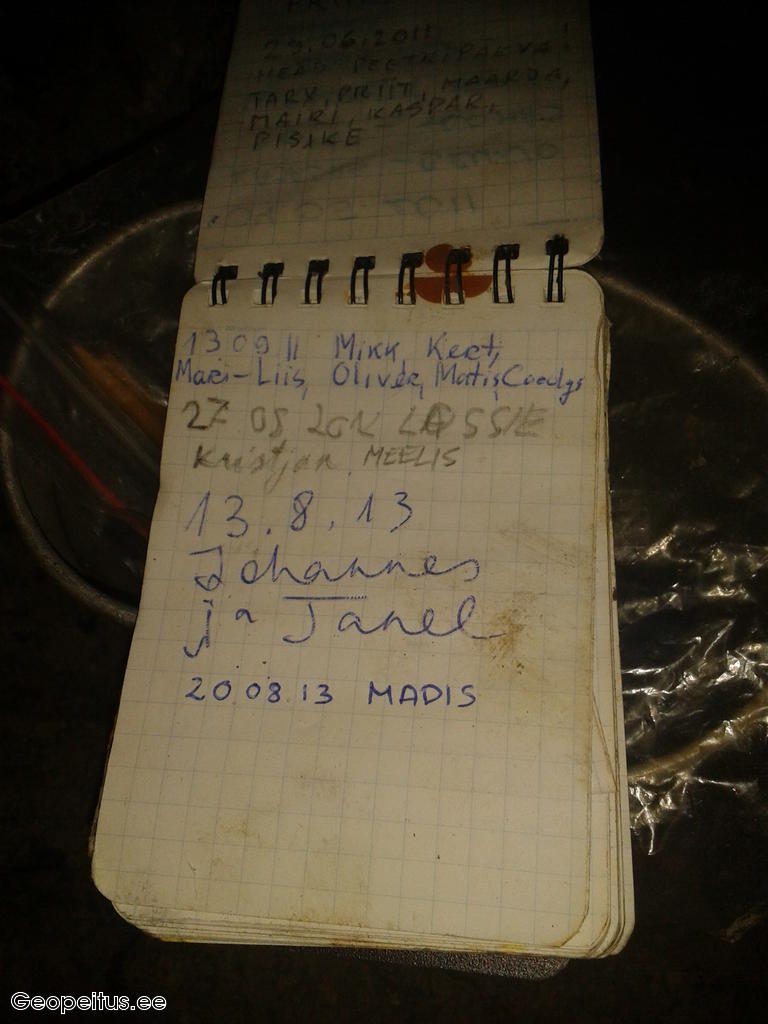 29.06.2011
HEAD PEETRIPÄEVA!
TARX, PRIIT, MAARJA,
MAIRI, KASPAR,
PISIKE
13 09 11 Mikk, Kert,
Mari-Liis, Oliver, Matis
27 08 LASSIE
Kristjan, MEELIS
13.8.13
Johannes
ja Janel
20 08 13 MADIS
Geopeitus.ee